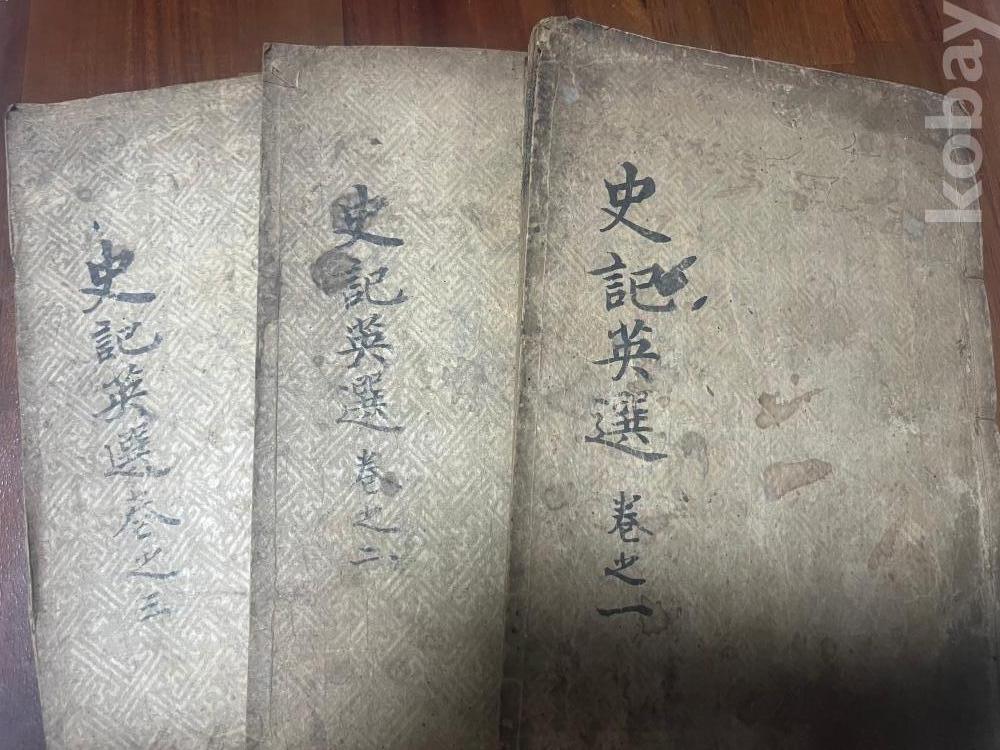 史記英選 卷之一
史記英選 卷之二
史記英選 卷之三
kobay